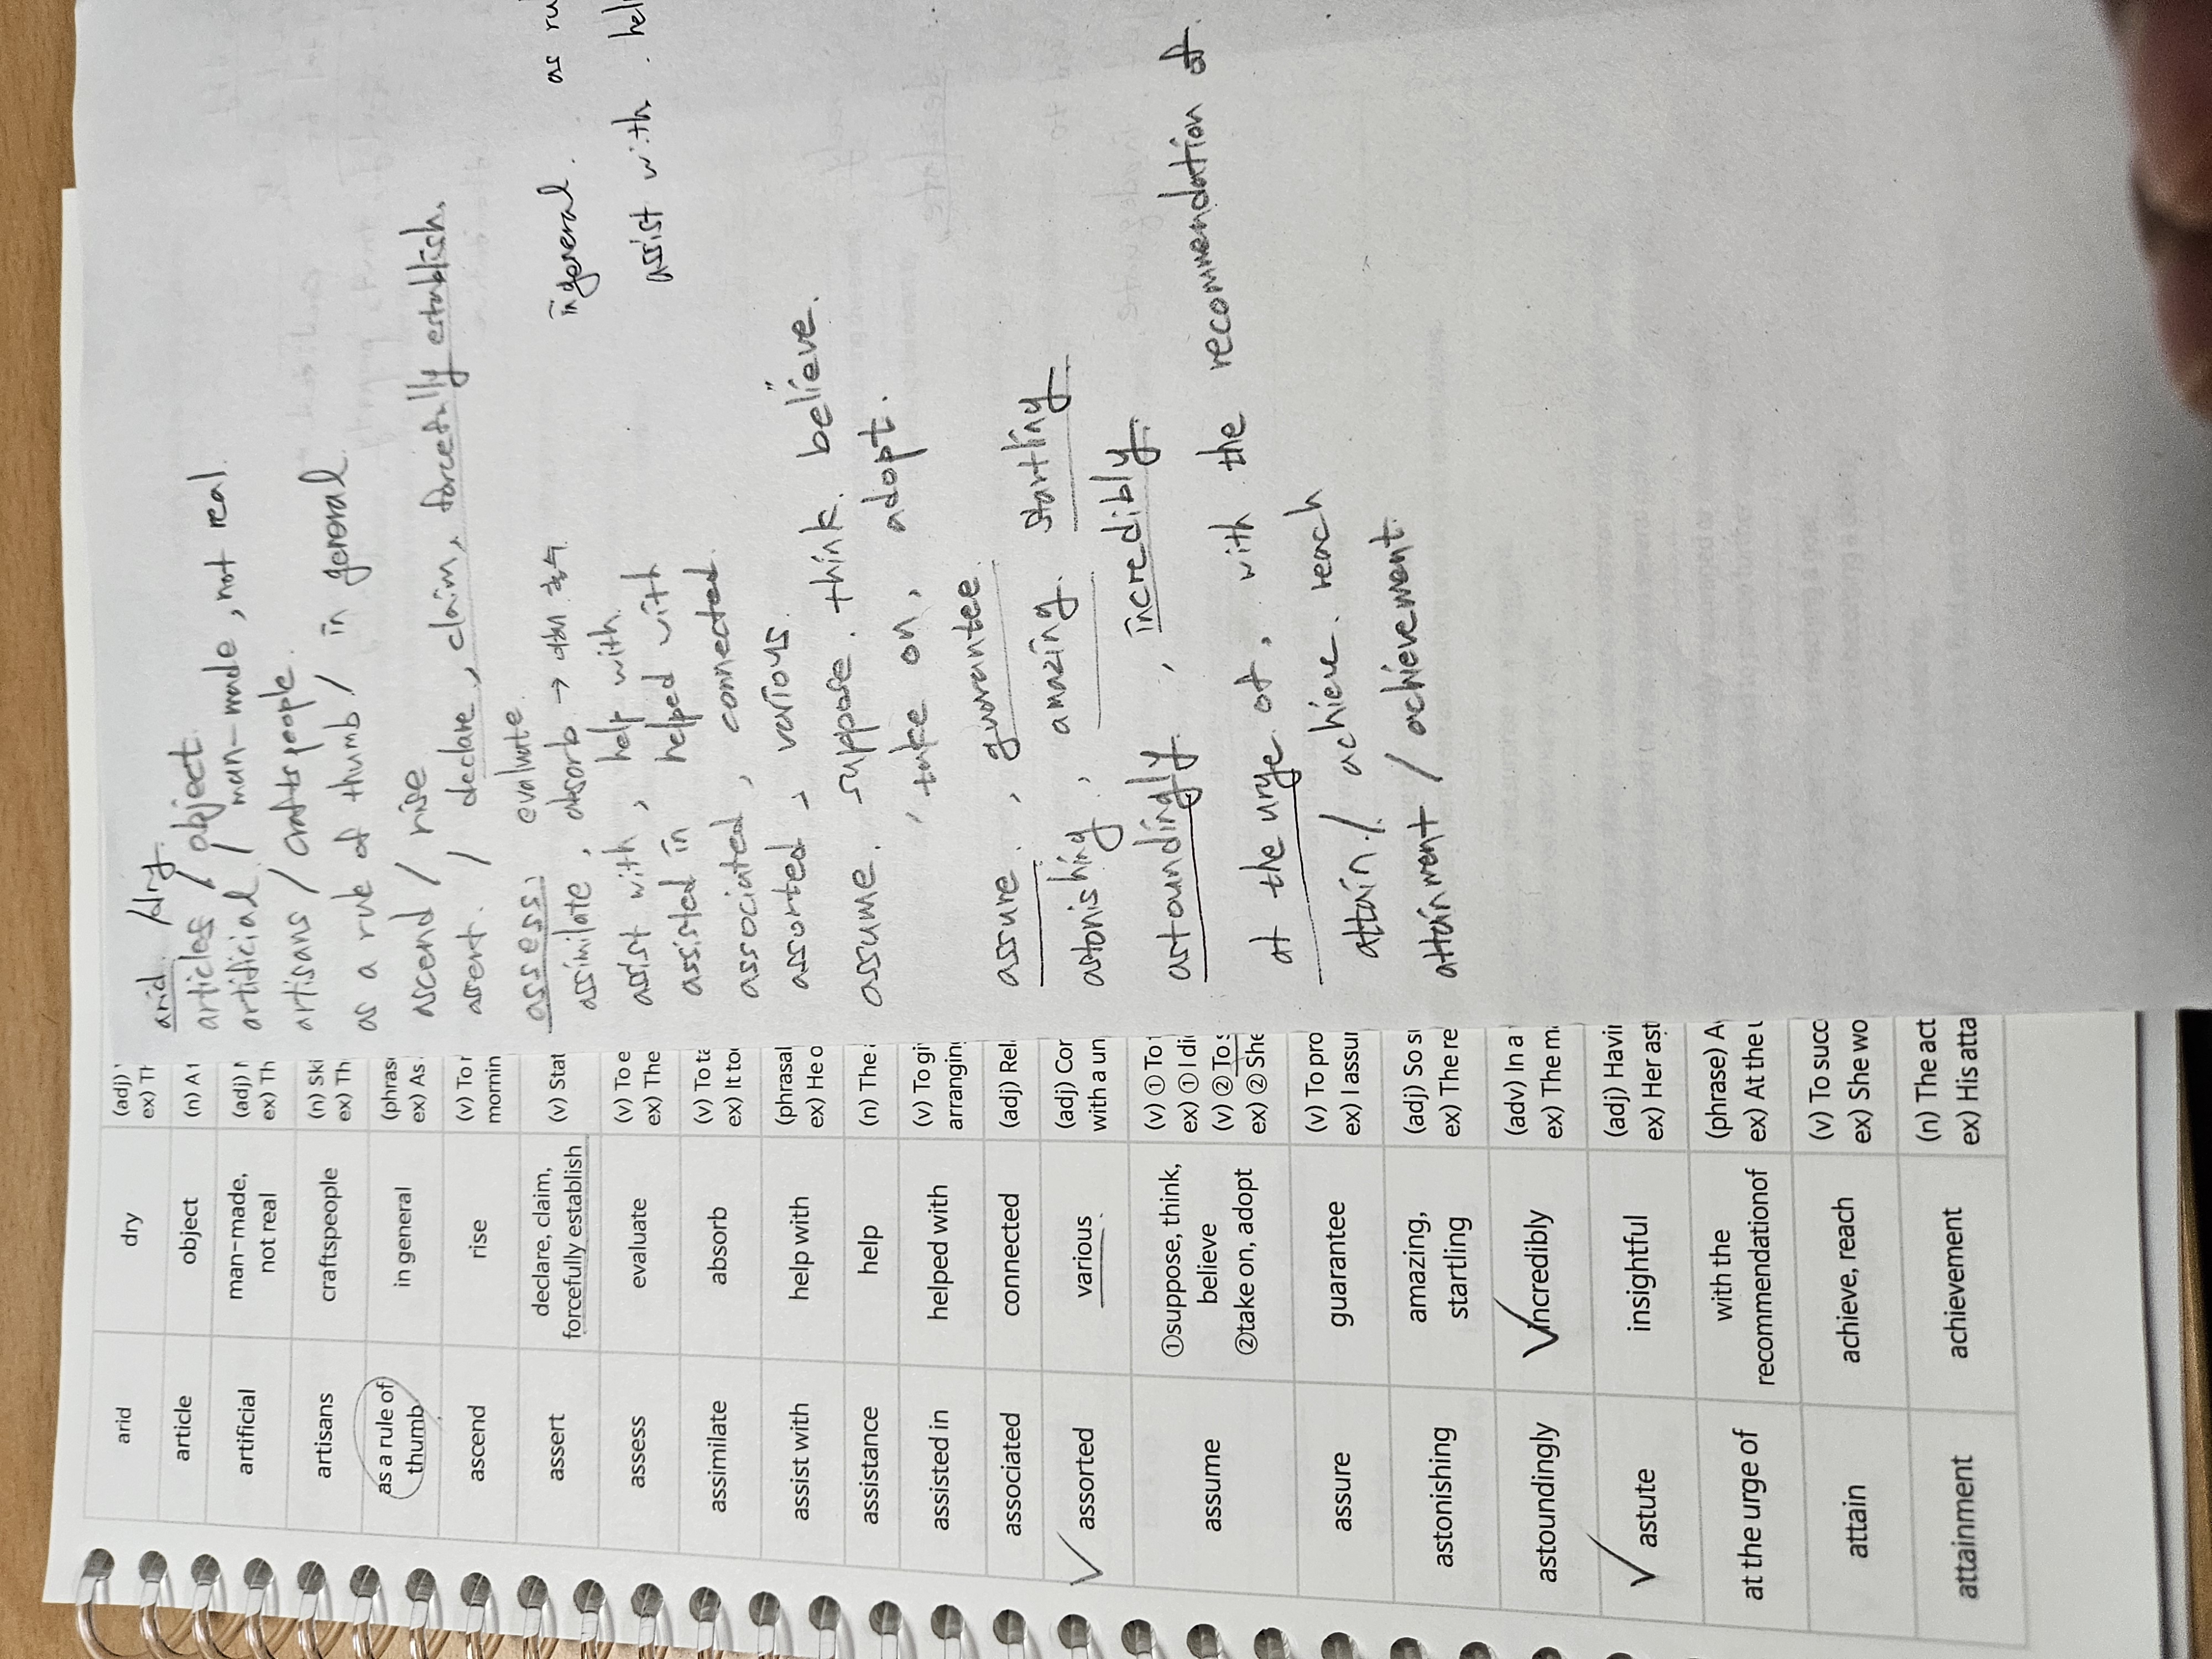 arid
dry
(adj)
ex) Th
article
object
(n) A
artificial
man-made,
not real
(adj)
ex) Th
artisans
craftspeople
(n) Ski
ex) Th
as a rule of
thumb
in general
(phras
ex) As
ascend
rise
(v) To
mornin
assert
declare, claim,
forcefully establish
(v) Stat
assess
evaluate
(v) To e
ex) The
assimilate
absorb
(v) To ta
ex) It too
assist with
help with
(phrasal
ex) He o
assistance
help
(n) The
assisted in
helped with
(v) To gi
arranging
associated
connected
(adj) Rel
assorted
various
(adj) Cor
with a un
assume
①suppose, think,
believe
②take on, adopt
(v) ① To
ex) ① I di
(v) ② To s
ex) ② She
assure
guarantee
(v) To pro
ex) I assur
astonishing
amazing,
startling
(adj) So s
ex) The re
astoundingly
incredibly
(adv) In a
ex) The m
astute
insightful
(adj) Havin
ex) Her ast
at the urge of
with the
recommendationof
(phrase) A
ex) At the u
attain
achieve, reach
(v) To succ
ex) She wo
attainment
achievement
(n) The act
ex) His atta
arid / dry.
articles / object.
artidicial / man-made, not real.
artisans / craftspeople.
as a rule of thumb / in general.
ascend / rise
assert. / declare, claim, forcefully establish.
assess, evaluate.
assimilate, absorb →
assist with, help with.
assisted in helped with
associated, connected.
assorted, various.
assume. suppose. think. believe.
, take on, adopt.
assure, guarantee.
astonishing, amazing. startling
astoundingly. , incredibly.
at the urge of, with the recommendation of
attain / achieve. reach
attainment / achievement.
in general. as ru
assist with. hel